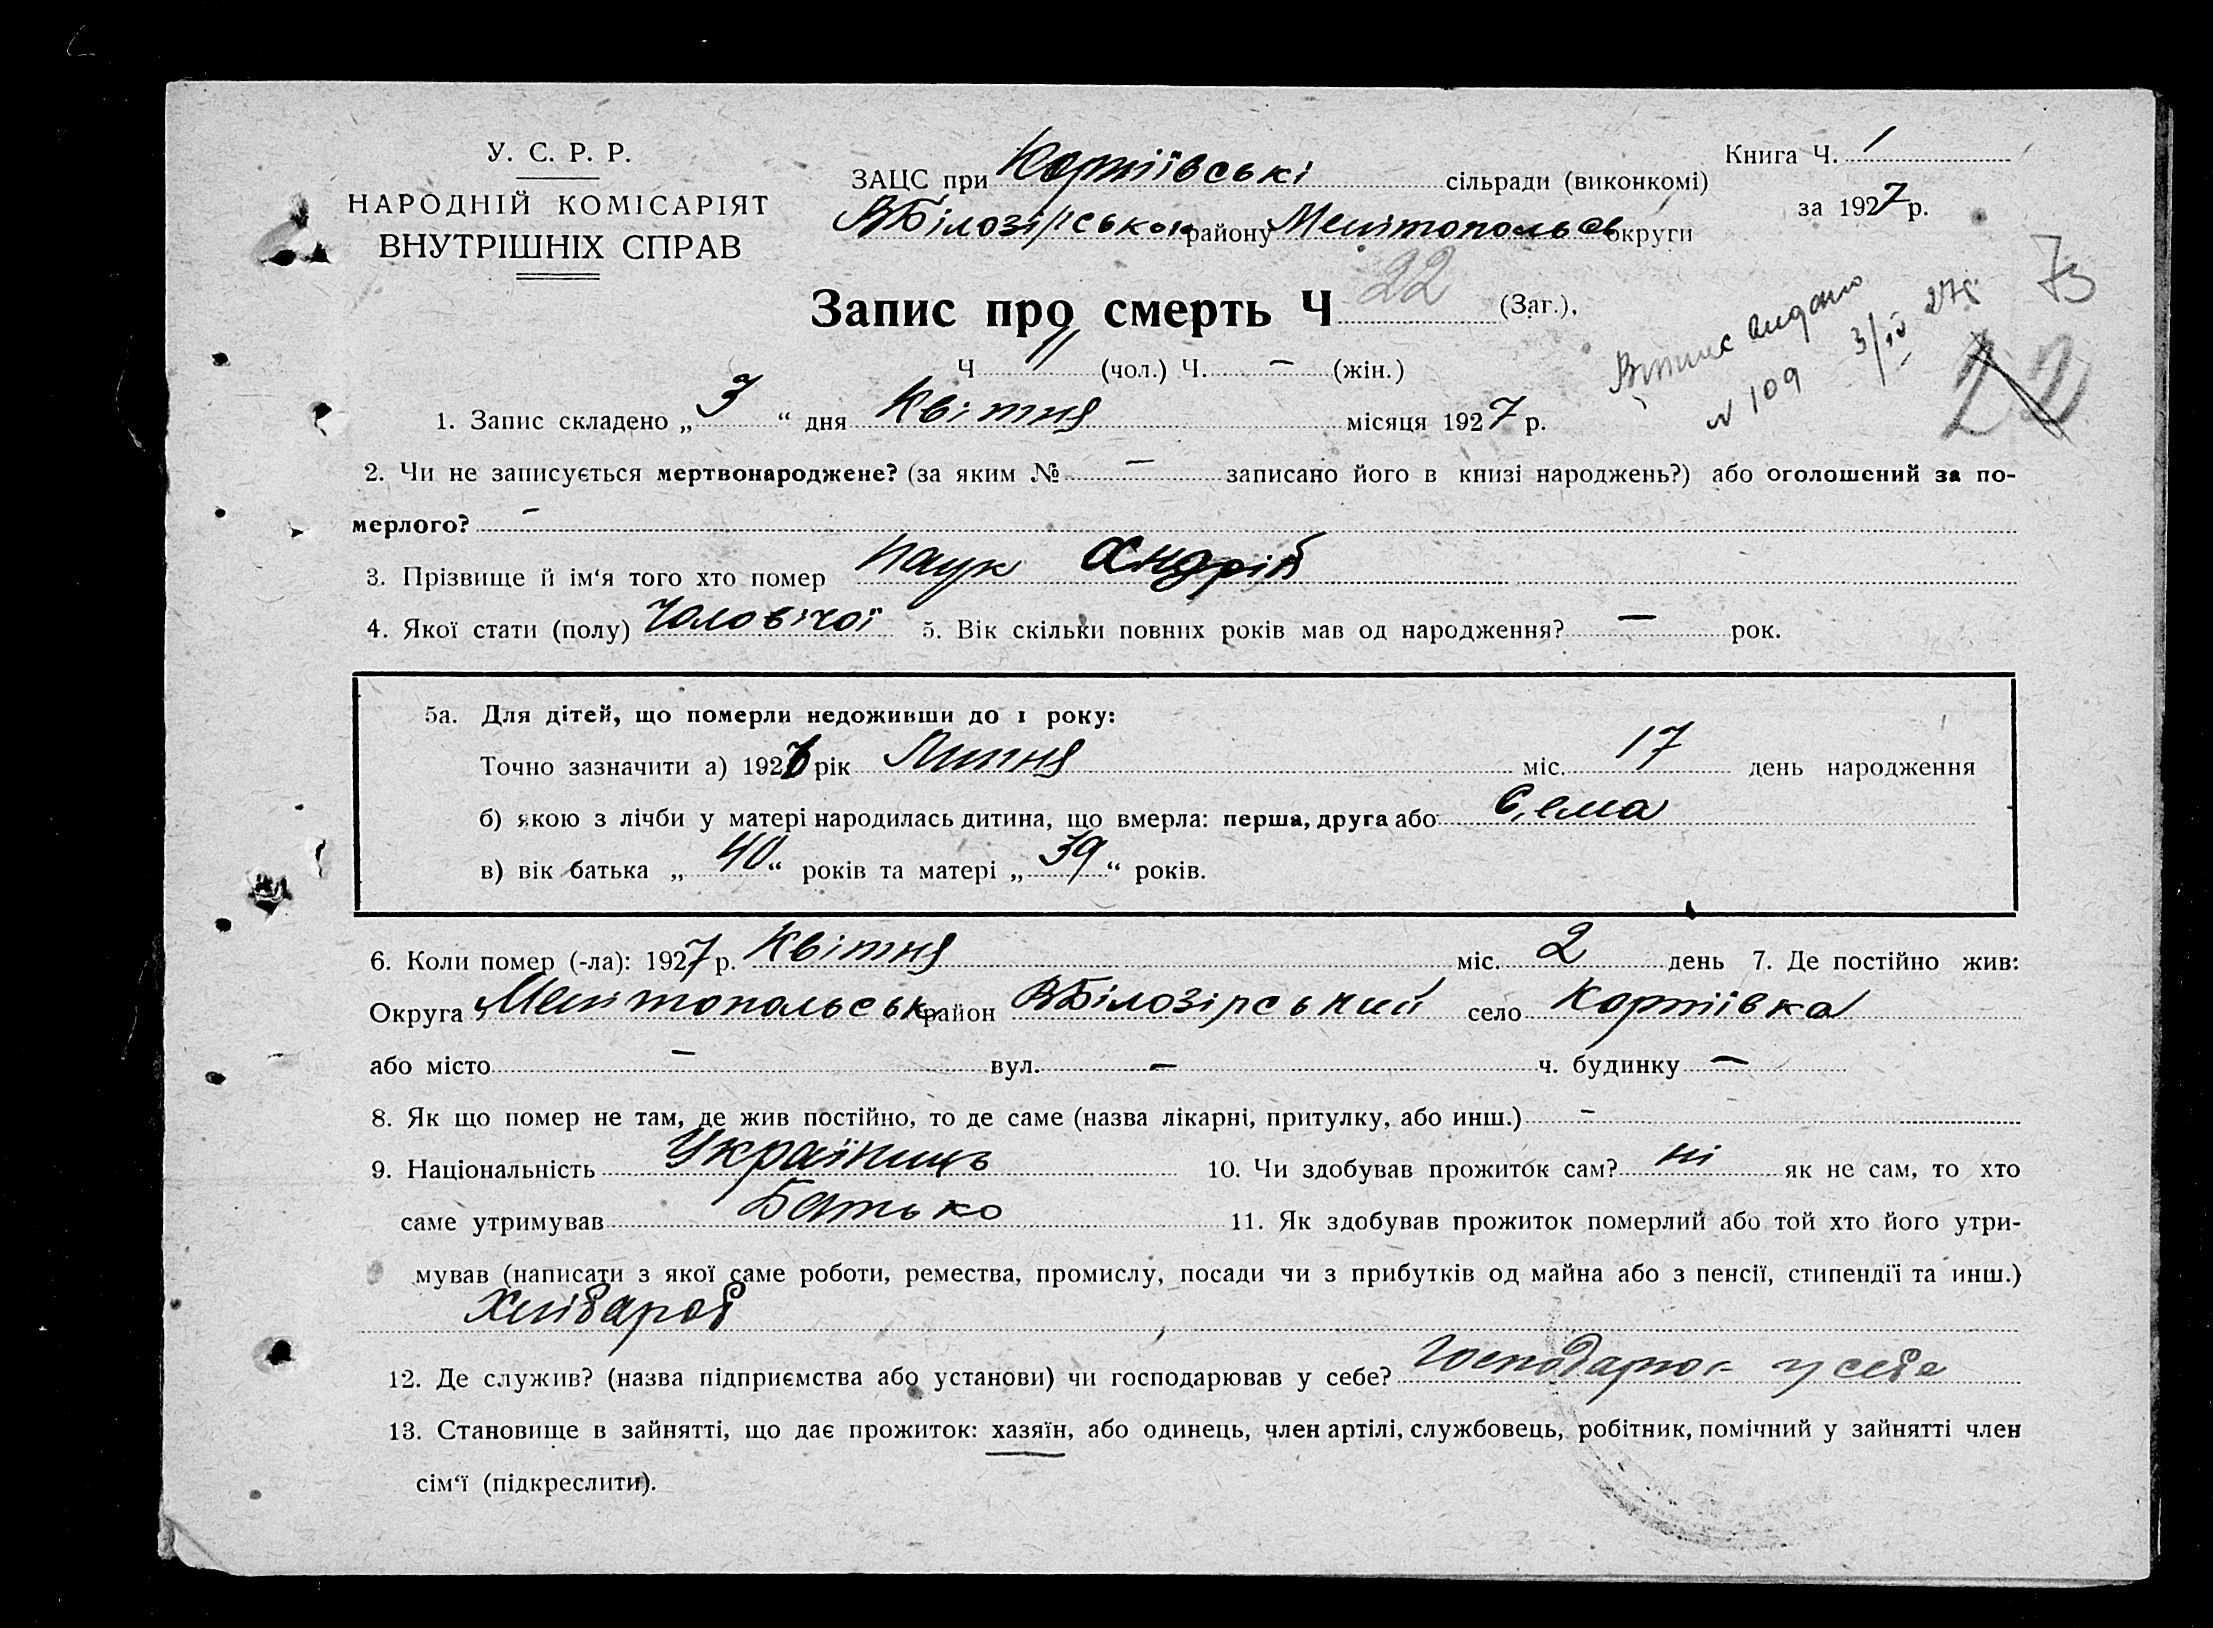 У. С. Р. Р.
НАРОДНІЙ КОМІСАРІЯТ
ВНУТРІШНІХ СПРАВ
ЗАЦС при Корніївські сільради (виконкомі)
ВБілозірськог району Мелітопольсь округи
Книга Ч. 1
за 1927 р.
Запис про смерть Ч 22 (Заг.),
Ч 11 (чол.) Ч. – (жін.)
Випис видано
N 109 3/IV 27р.
73
22
1. Запис складено „ 3 “ дня Квітня місяця 1927 р.
2. Чи не записується мертвонароджене? (за яким № – записано його в книзі народжень?) або оголошений за по-
мерлого? –
3. Прізвище й ім‘я того хто помер Паук Андрій
4. Якої стати (полу) Чоловічої 5. Вік скільки повних років мав од народження? – рок.
5а. Для дітей, що померли недоживши до 1 року:
Точно зазначити а) 1926 рік Липня міс. 17 день народження
б) якою з лічби у матері народилась дитина, що вмерла: перша, друга або Сема
в) вік батька „ 40 “ років та матері „ 39 “ років.
6. Коли помер (-ла): 1927 р. Квітня міс. 2 день 7. Де постійно жив:
Округа Мелітопольськ район ВБілозірський село Корніївка
або місто – вул. – ч. будинку –
8. Як що помер не там, де жив постійно, то де саме (назва лікарні, притулку, або инш.) –
9. Національність Українець 10. Чи здобував прожиток сам? ні як не сам, то хто
саме утримував Батько 11. Як здобував прожиток померлий або той хто його утри-
мував (написати з якої саме роботи, ремества, промислу, посади чи з прибутків од майна або з пенсії, стипендії та инш.)
Хлібароб
12. Де служив? (назва підприємства або установи) чи господарював у себе? у себе
13. Становище в зайнятті, що дає прожиток: хазяїн, або одинець, член артілі, службовець, робітник, помічний у зайнятті член
сім‘ї (підкреслити).